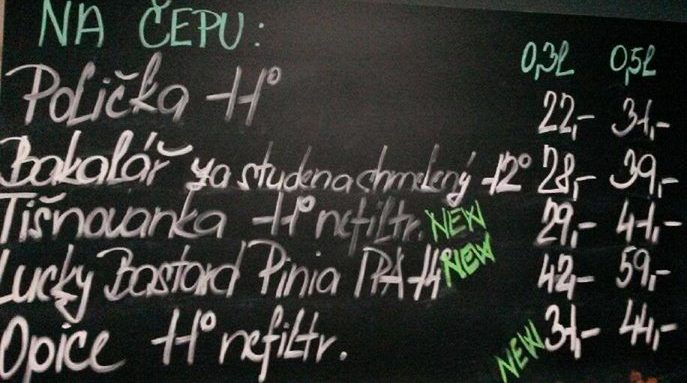 NA ČEPU: 0,3L 0,5L
Polička 11° 22,- 31,-
Bakalář za studena chmelený 12° 28,- 39,-
Tišnovanka 11° nefiltr. NEW 29,- 41,-
Lucky Bastard Pinia IPA 14 NEW 42,- 59,-
Opice 11° nefiltr. NEW 31,- 44,-